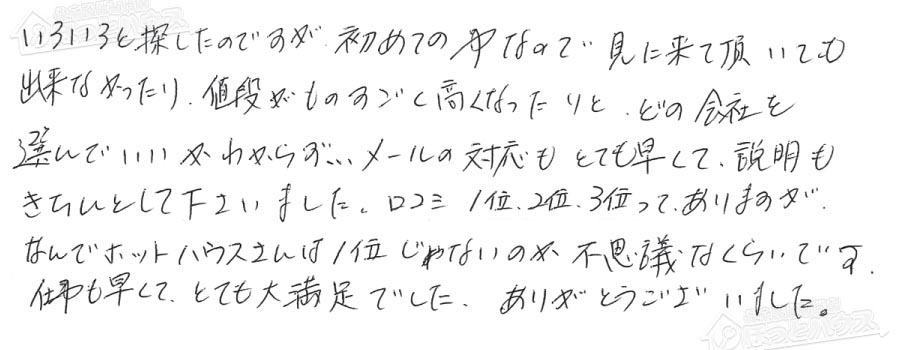 いろいろと探したのですが、初めての事なので見に来て頂いても
出来なかったり、値段がものすごく高くなったりと、どの会社を
選んでいいかわからず…メールの対応もとても早くて、説明も
きちんとして下さいました。口コミ1位、2位、3位って、ありますが、
なんでホットハウスさんは1位じゃないのか不思議なくらいです。
仕事も早くて、とても大満足でした。ありがとうございました。
ほっとハウス